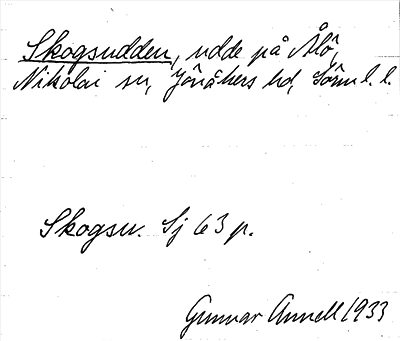 Skogsudden, udde på Ålö,
Nikolai sn, Jönåkers hd, Sörml. l.
Skogsu. Sj 63 p.
Gunnar Annell 1933